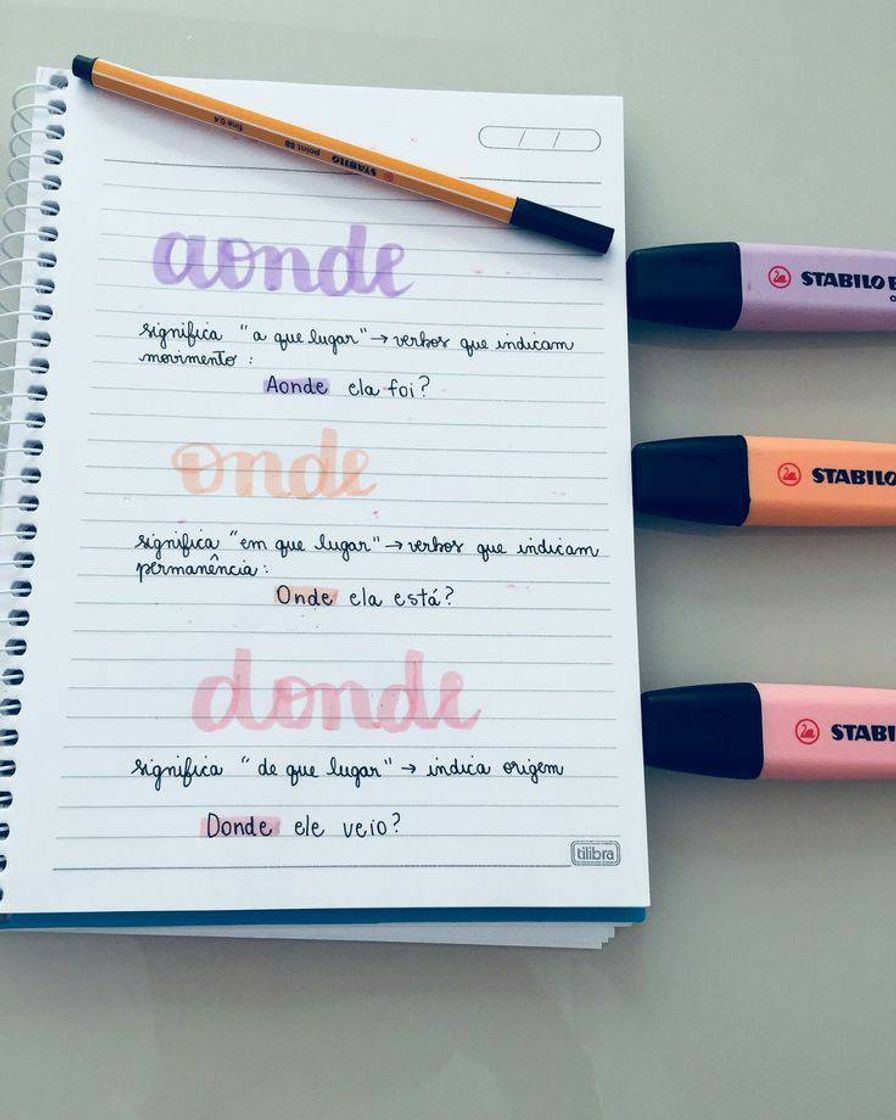 STABILO point 88 fine 0.4
/ /
aonde
significa "a que lugar" → verbos que indicam
movimento :
Aonde ela foi?
onde
significa "em que lugar" → verbos que indicam
permanência :
Onde ela está?
donde
significa "de que lugar" → indica origem
Donde ele veio?
tilibra
STABILO B
STABILO
STABI